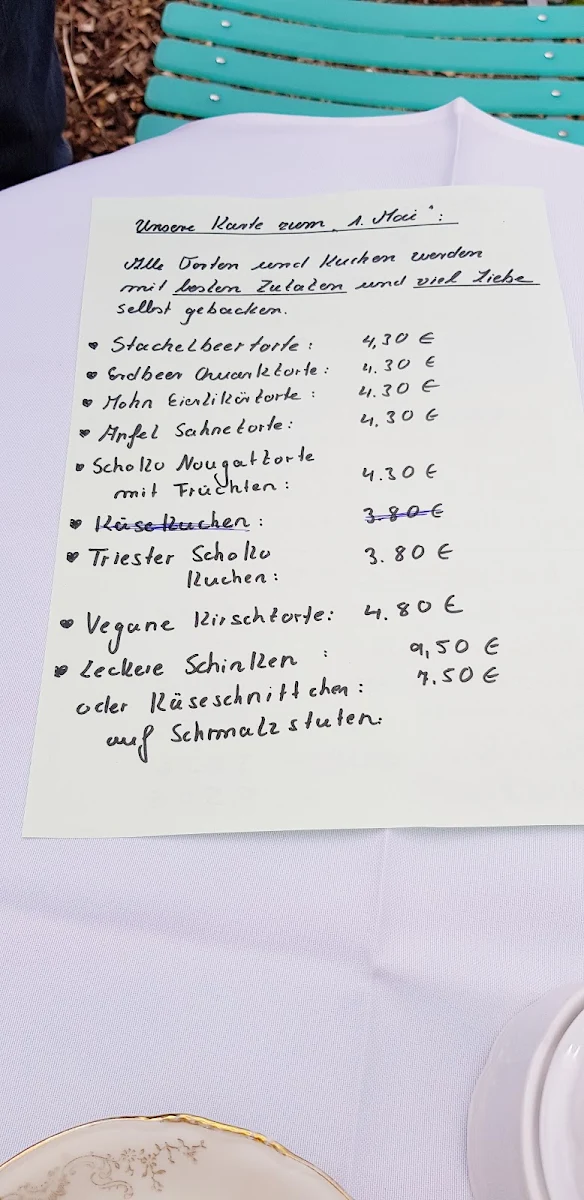 Unsere Karte zum „1. Mai“:
Alle Torten und Kuchen werden
mit besten Zutaten und viel Liebe
selbst gebacken.
♥ Stachelbeertorte: 4,30 €
♥ Erdbeer Quarktorte: 4.30 €
♥ Mohn Eierlikörtorte: 4.30 €
♥ Apfel Sahnetorte: 4,30 €
♥ Schoko Nougattorte
mit Früchten: 4.30 €
♥ Käsekuchen: 3.80 €
♥ Triester Schoko 3.80 €
Kuchen:
♥ Vegane Kirschtorte: 4.80 €
♥ Leckere Schinken : 9,50 €
oder Käseschnittchen: 7.50 €
auf Schmalzstuten.